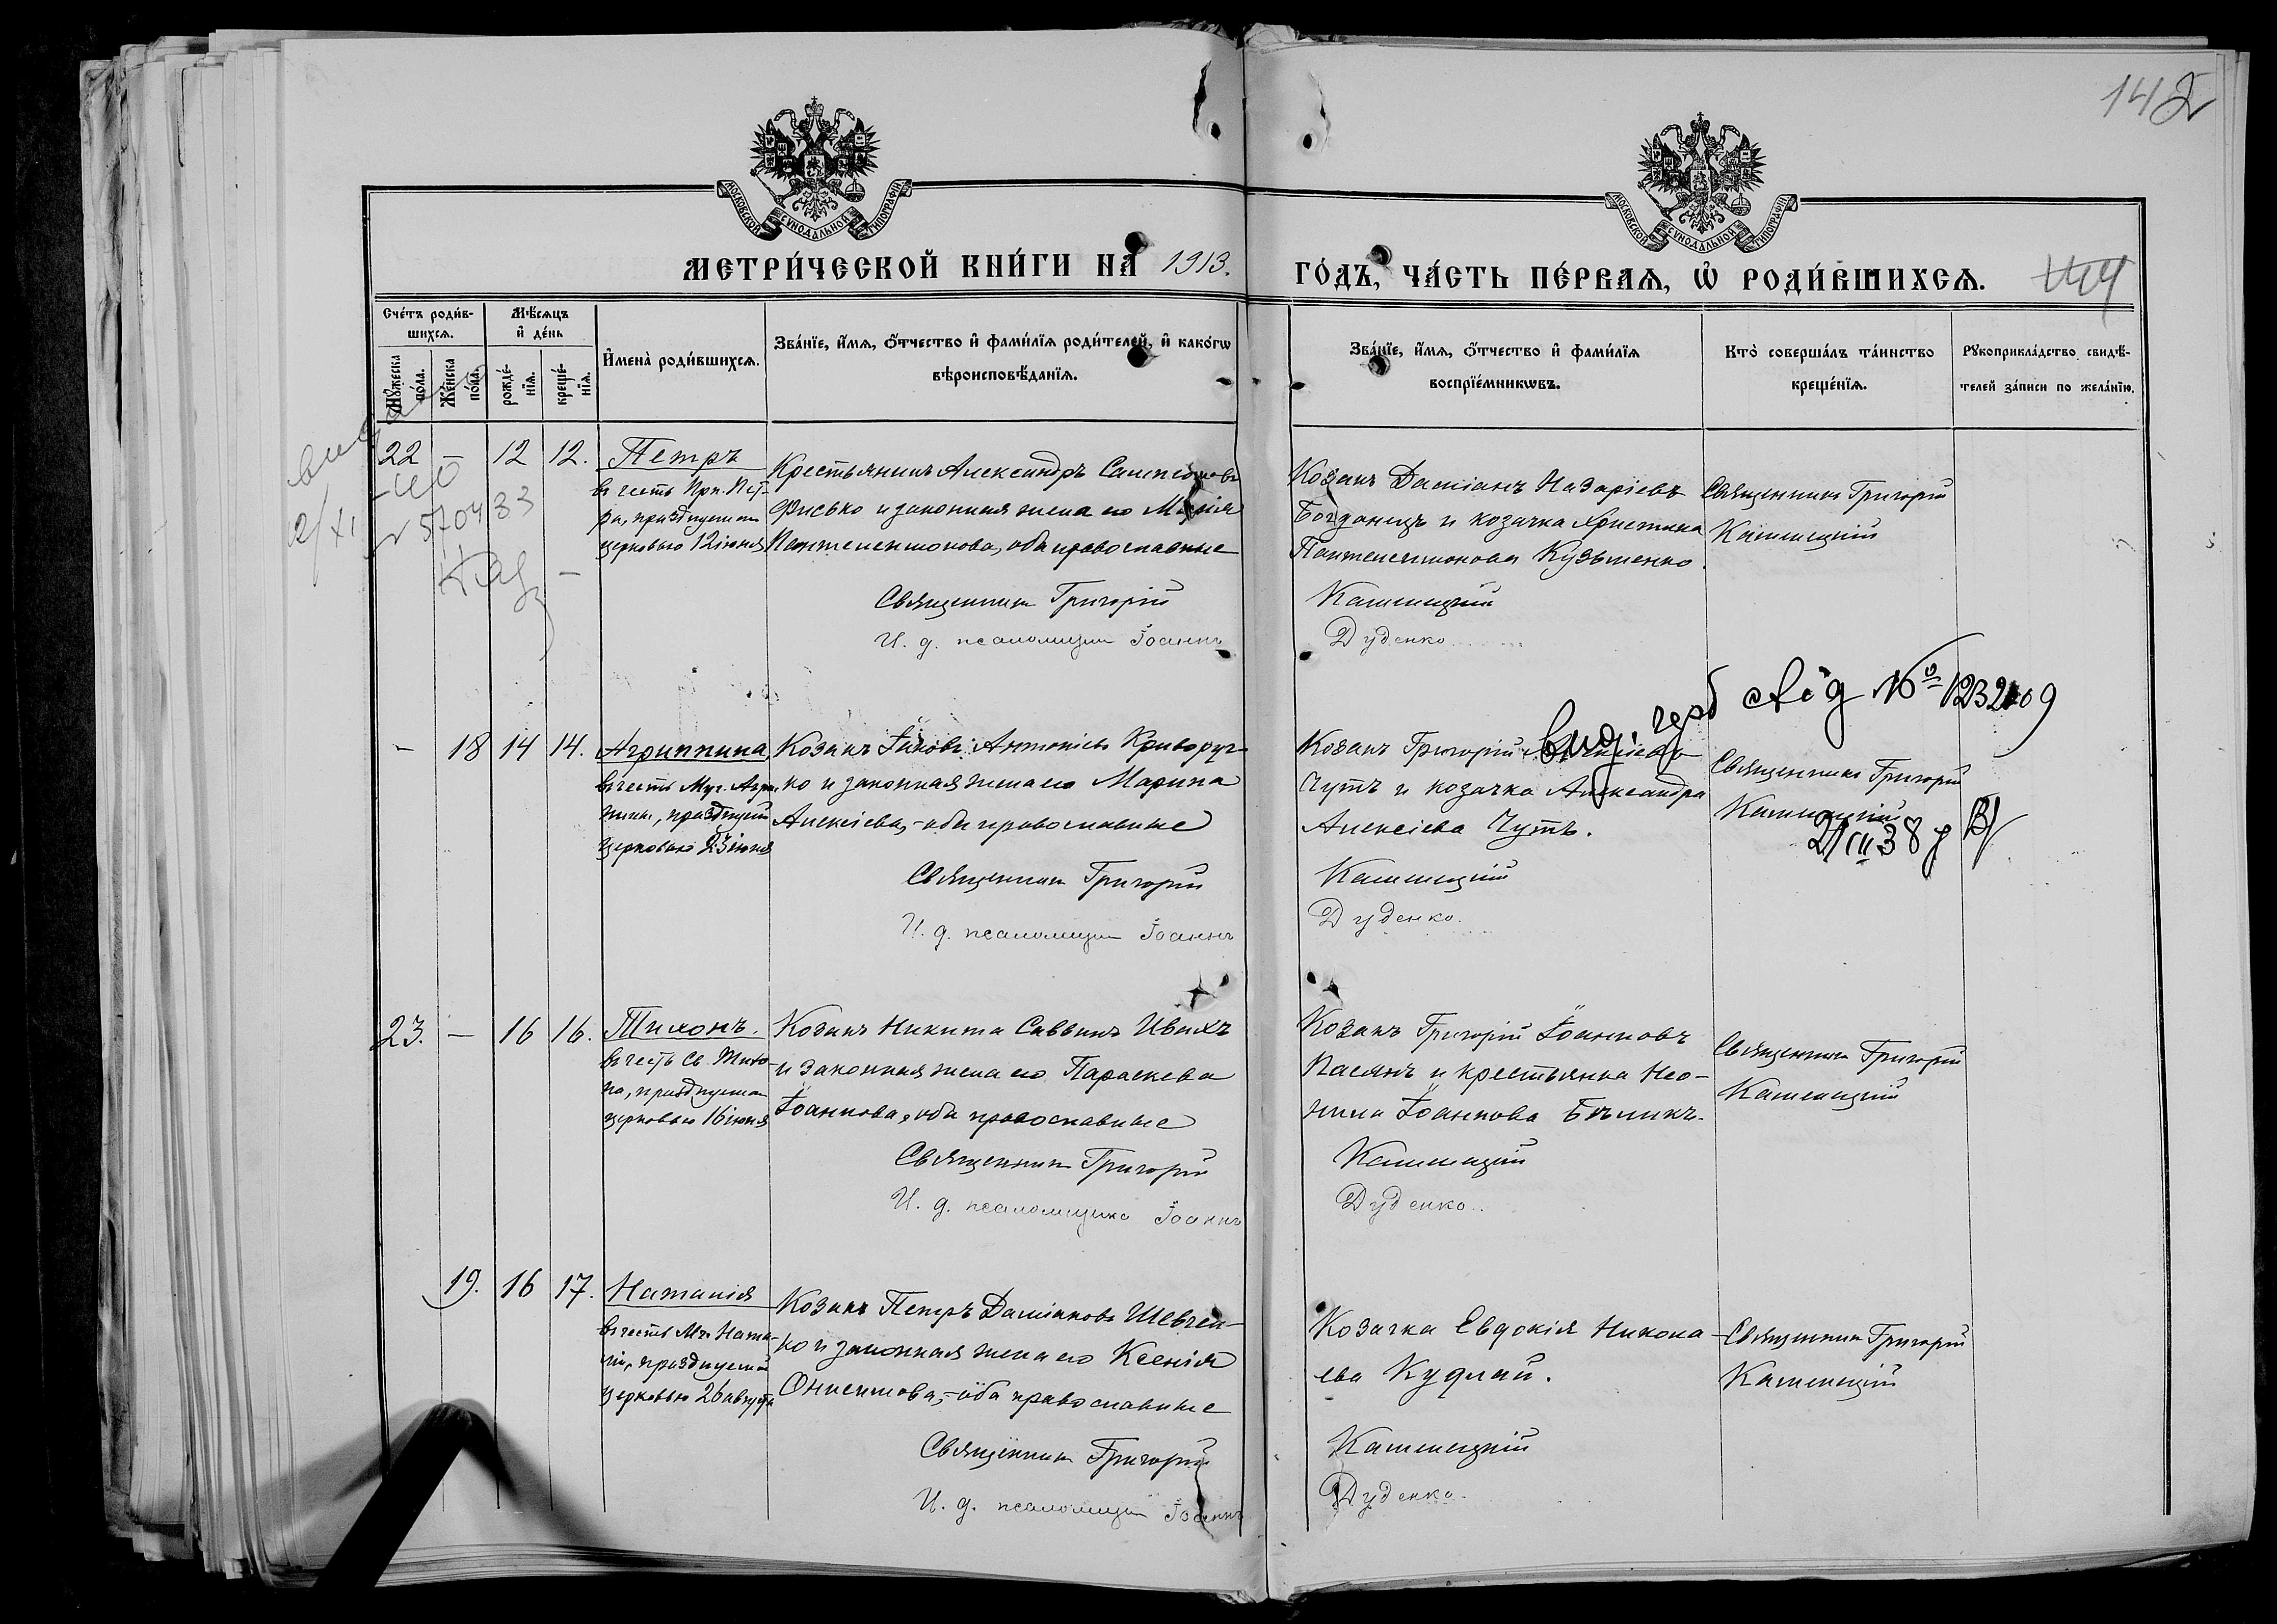 142
МОСКОВСКОЙ СУНОДАЛЬНОЙ ТИПОГРАФІИ
МОСКОВСКОЙ СУНОДАЛЬНОЙ ТИПОГРАФІИ
МЕТРИ́ЧЕСКОЙ КНИ́ГИ НА 1913.
ГО́ДЪ, ЧА́СТЬ ПЕ́РВАѦ, Ѡ РОДИ́ВШИХСѦ.
Сче́тъ роди́в-
шихсѧ.
Мѣ́сѧцъ
и де́нь
Мꙋ́жеска
по́ла.
Же́нска
по́ла.
рожде́-
нїѧ.
креще́-
нїѧ.
И҆мена̀ роди́вшихсѧ.
Зва́нїе, и҆́мѧ, ѻ҆́тчество и҆ фами́лїѧ роди́телей, и҆ како́гѡ
вѣроисповѣ́данїѧ.
Зва́нїе, и҆́мѧ, ѻ҆́тчество и҆ фами́лїѧ
воспрїе́мникѡвъ.
Кто̀ соверша́лъ та́инство
креще́нїѧ.
Рꙋкоприкла́дство свидѣ́-
телей за́писи по жела́нїю.
22 — 12 12. Петръ
въ честь Прп. Пет-
ра, празднуемаго
церковью 12 іюня
Крестьянинъ Александръ Сампсоновъ
Фисько и законная жена его Марія
Пантелеимонова, оба православные
Священникъ Григорій
И. д. псаломщика Іоаннъ
Козакъ Даміанъ Назаріевъ
Богданецъ и козачка Христина
Пантелеимонова Кузьменко.
Кашицкій
Дуденко
Священникъ Григорій
Кашицкій
12/XI
№ 570433
вид. герб свід № 1232109
21/III 38 р
— 18 14 14. Агриппина,
въ честь Муч. Агрип-
пины, празднуемой
церковью 23 іюня
Козакъ Іаковъ Антоніевъ Криворуч-
ко и законная жена его Марина
Алексіева, – оба православные
Священникъ Григорій
И. д. псаломщика Іоаннъ
Козакъ Григорій
Чутъ и козачка Александра
Алексіева Чутъ.
Кашицкій
Дуденко.
Священникъ Григорій
Кашицкій
23. — 16 16. Тихонъ.
въ честь Св. Тихо-
на, празднуемаго
церковью 16 іюня
Козакъ Никита Саввинъ Ивахъ
и законная жена его Параскева
Іоаннова, оба православные
Священникъ Григорій
И. д. псаломщика Іоаннъ
Козакъ Григорій Іоанновъ
Пасянъ и крестьянка Нео-
нила Іоаннова Бѣликъ.
Кашицкій
Дуденко.
Священникъ Григорій
Кашицкій
19. 16 17. Наталія
въ честь Мч. Ната-
ліи, празднуемой
церковью 26 августа
Козакъ Петръ Даміановъ Шевчен-
ко и законная жена его Ксенія
Онисимова, – оба православные
Священникъ Григорій
И. д. псаломщика Іоаннъ
Козачка Евдокія Никола-
ева Кудлай.
Кашицкій
Дуденко.
Священникъ Григорій
Кашицкій